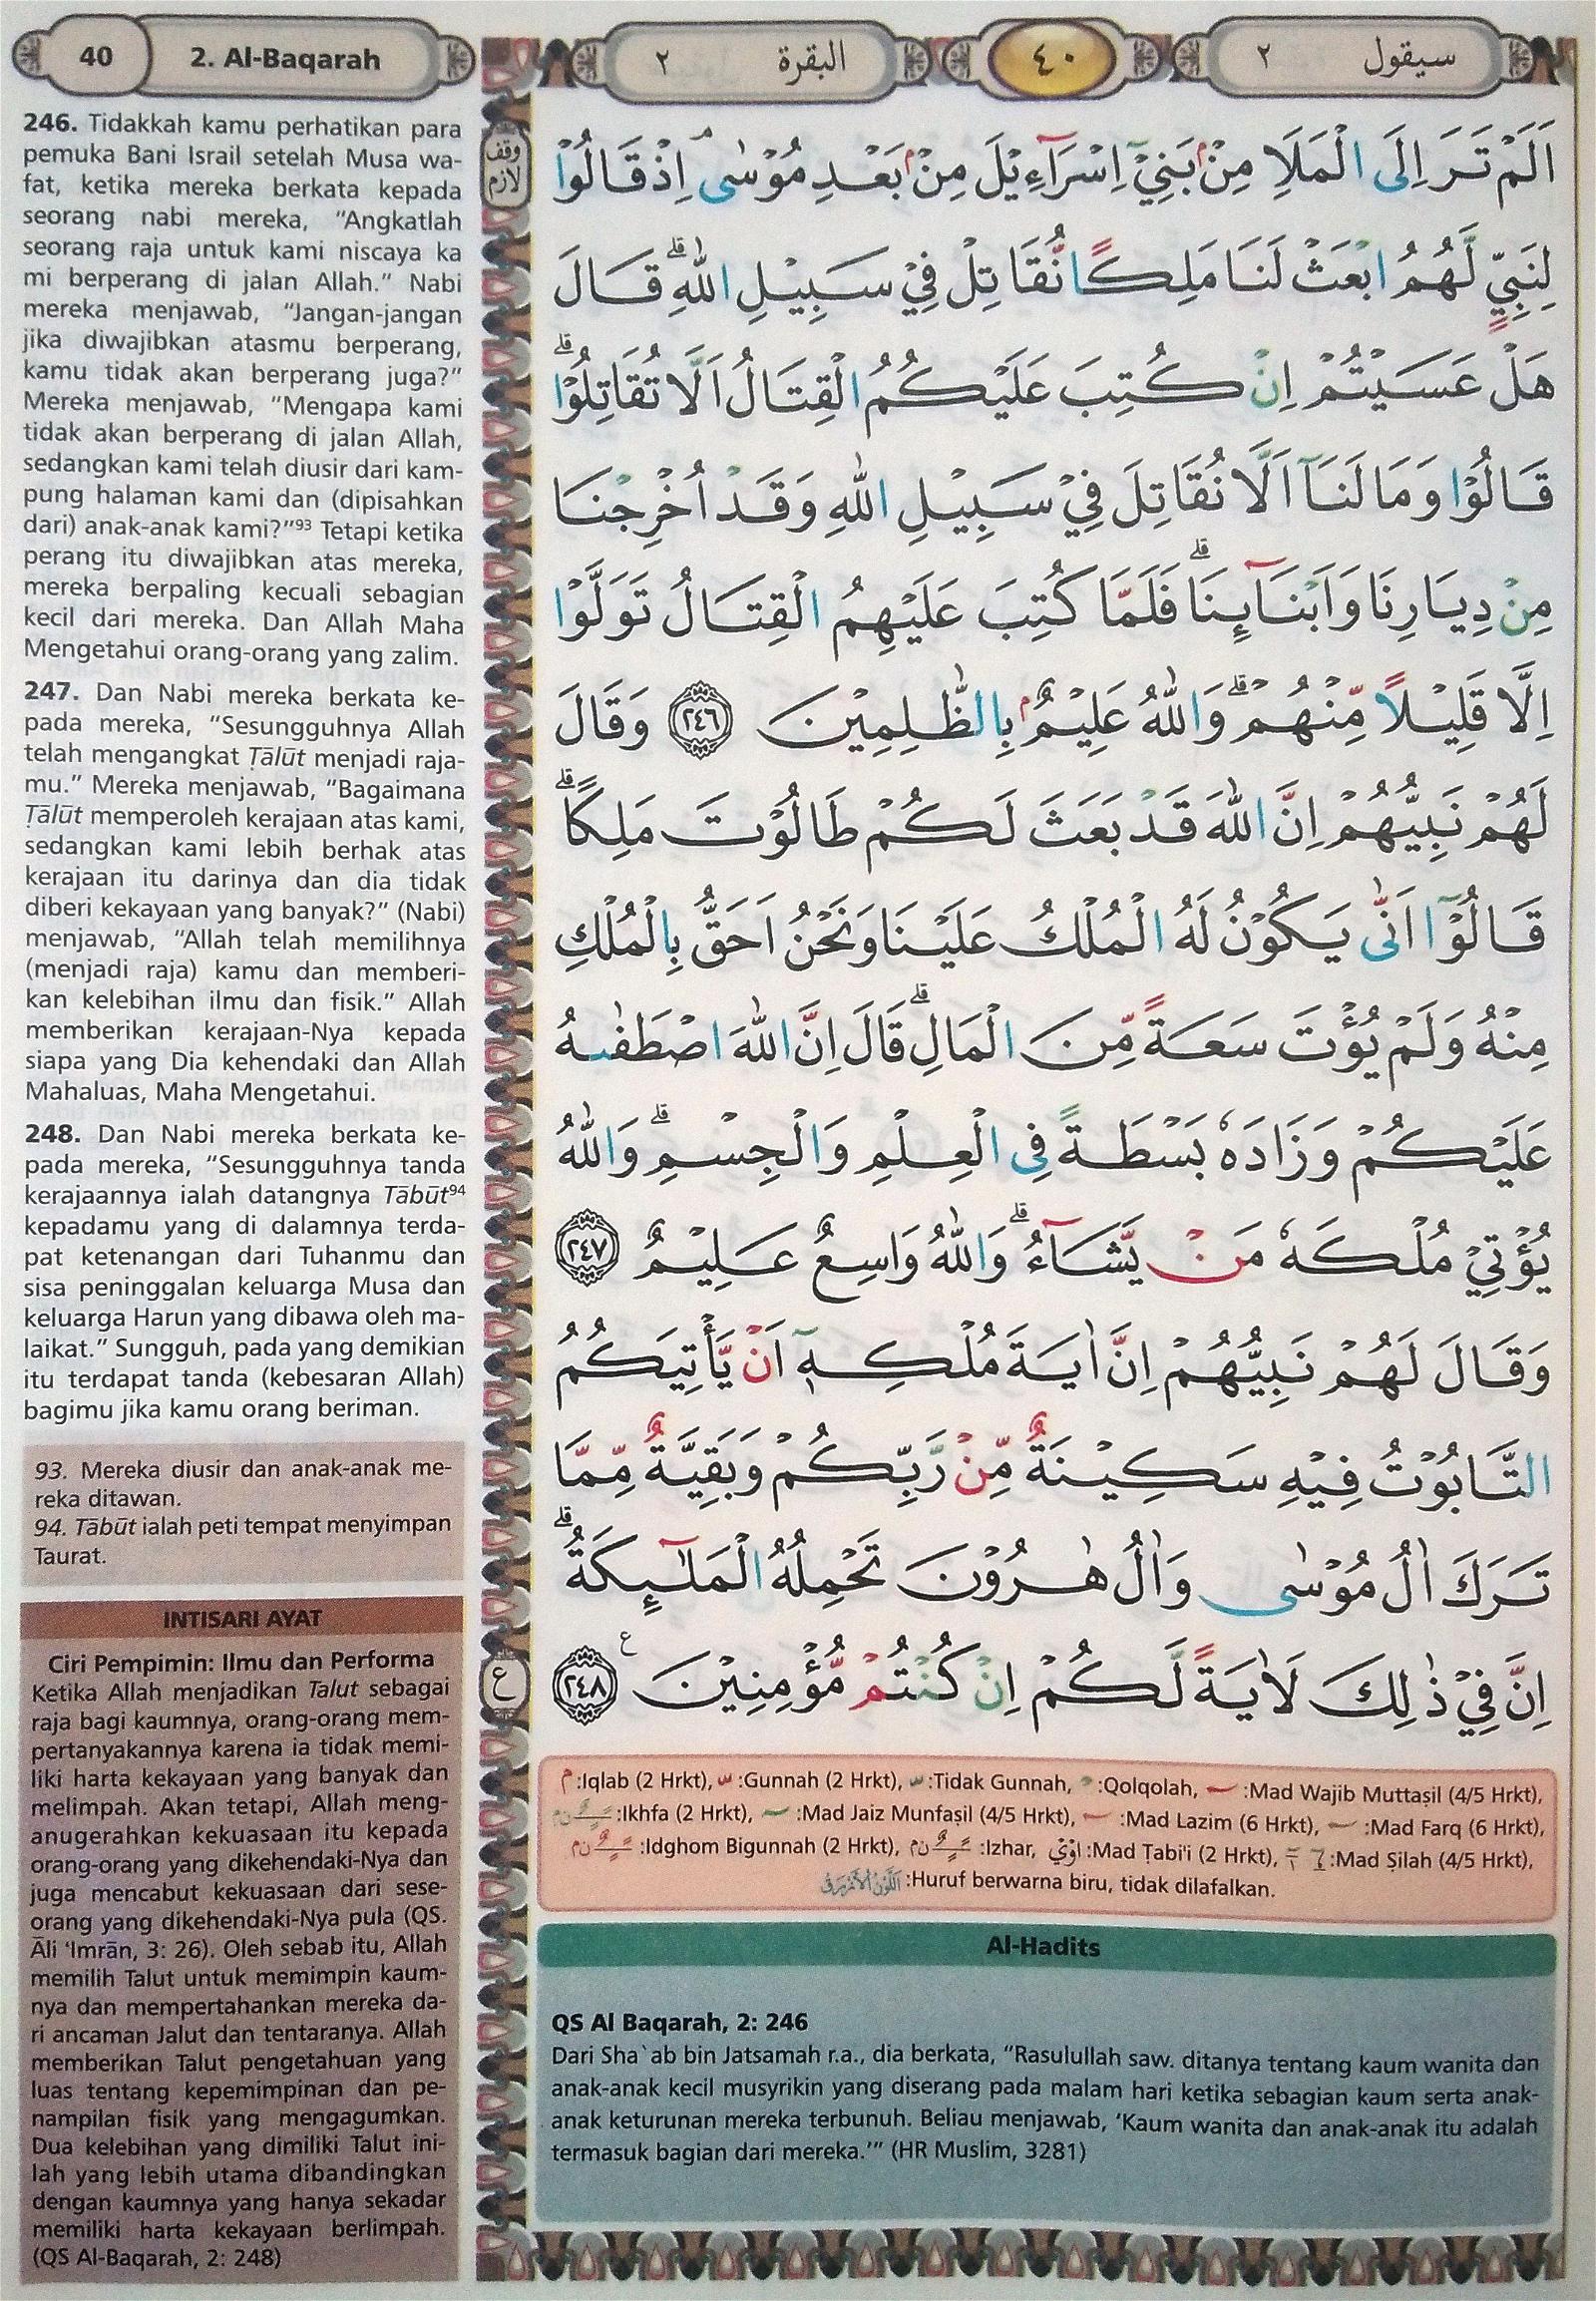 40
2. Al-Baqarah
البقرة ٢
٤٠
سيقول ٢
246. Tidakkah kamu perhatikan para
pemuka Bani Israil setelah Musa wa-
fat, ketika mereka berkata kepada
seorang nabi mereka, “Angkatlah
seorang raja untuk kami niscaya ka
mi berperang di jalan Allah.” Nabi
mereka menjawab, “Jangan-jangan
jika diwajibkan atasmu berperang,
kamu tidak akan berperang juga?”
Mereka menjawab, “Mengapa kami
tidak akan berperang di jalan Allah,
sedangkan kami telah diusir dari kam-
pung halaman kami dan (dipisahkan
dari) anak-anak kami?”⁹³ Tetapi ketika
perang itu diwajibkan atas mereka,
mereka berpaling kecuali sebagian
kecil dari mereka. Dan Allah Maha
Mengetahui orang-orang yang zalim.
247. Dan Nabi mereka berkata ke-
pada mereka, “Sesungguhnya Allah
telah mengangkat Ṭālūt menjadi raja-
mu.” Mereka menjawab, “Bagaimana
Ṭālūt memperoleh kerajaan atas kami,
sedangkan kami lebih berhak atas
kerajaan itu darinya dan dia tidak
diberi kekayaan yang banyak?” (Nabi)
menjawab, “Allah telah memilihnya
(menjadi raja) kamu dan memberi-
kan kelebihan ilmu dan fisik.” Allah
memberikan kerajaan-Nya kepada
siapa yang Dia kehendaki dan Allah
Mahaluas, Maha Mengetahui.
248. Dan Nabi mereka berkata ke-
pada mereka, “Sesungguhnya tanda
kerajaannya ialah datangnya Tābūt⁹⁴
kepadamu yang di dalamnya terda-
pat ketenangan dari Tuhanmu dan
sisa peninggalan keluarga Musa dan
keluarga Harun yang dibawa oleh ma-
laikat.” Sungguh, pada yang demikian
itu terdapat tanda (kebesaran Allah)
bagimu jika kamu orang beriman.
93. Mereka diusir dan anak-anak me-
reka ditawan.
94. Tābūt ialah peti tempat menyimpan
Taurat.
INTISARI AYAT
Ciri Pempimin: Ilmu dan Performa
Ketika Allah menjadikan Talut sebagai
raja bagi kaumnya, orang-orang mem-
pertanyakannya karena ia tidak memi-
liki harta kekayaan yang banyak dan
melimpah. Akan tetapi, Allah meng-
anugerahkan kekuasaan itu kepada
orang-orang yang dikehendaki-Nya dan
juga mencabut kekuasaan dari sese-
orang yang dikehendaki-Nya pula (QS.
Āli ‘Imrān, 3: 26). Oleh sebab itu, Allah
memilih Talut untuk memimpin kaum-
nya dan mempertahankan mereka da-
ri ancaman Jalut dan tentaranya. Allah
memberikan Talut pengetahuan yang
luas tentang kepemimpinan dan pe-
nampilan fisik yang mengagumkan.
Dua kelebihan yang dimiliki Talut ini-
lah yang lebih utama dibandingkan
dengan kaumnya yang hanya sekadar
memiliki harta kekayaan berlimpah.
(QS Al-Baqarah, 2: 248)
وقف
لازم
اَلَمْ تَرَ اِلَى الْمَلَاِ مِنْۢ بَنِيْٓ اِسْرَاۤءِيْلَ مِنْۢ بَعْدِ مُوْسٰىۘ اِذْ قَالُوْا
لِنَبِيٍّ لَّهُمُ ابْعَثْ لَنَا مَلِكًا نُّقَاتِلْ فِيْ سَبِيْلِ اللّٰهِ ۗ قَالَ
هَلْ عَسَيْتُمْ اِنْ كُتِبَ عَلَيْكُمُ الْقِتَالُ اَلَّا تُقَاتِلُوْا ۗ
قَالُوْا وَمَا لَنَآ اَلَّا نُقَاتِلَ فِيْ سَبِيْلِ اللّٰهِ وَقَدْ اُخْرِجْنَا
مِنْ دِيَارِنَا وَاَبْنَاۤىِٕنَا ۗ فَلَمَّا كُتِبَ عَلَيْهِمُ الْقِتَالُ تَوَلَّوْا
اِلَّا قَلِيْلًا مِّنْهُمْ ۗ وَاللّٰهُ عَلِيْمٌۢ بِالظّٰلِمِيْنَ ٢٤٦ وَقَالَ
لَهُمْ نَبِيُّهُمْ اِنَّ اللّٰهَ قَدْ بَعَثَ لَكُمْ طَالُوْتَ مَلِكًا ۗ
قَالُوْٓا اَنّٰى يَكُوْنُ لَهُ الْمُلْكُ عَلَيْنَا وَنَحْنُ اَحَقُّ بِالْمُلْكِ
مِنْهُ وَلَمْ يُؤْتَ سَعَةً مِّنَ الْمَالِ ۗ قَالَ اِنَّ اللّٰهَ اصْطَفٰىهُ
عَلَيْكُمْ وَزَادَهٗ بَسْطَةً فِى الْعِلْمِ وَالْجِسْمِ ۗ وَاللّٰهُ
يُؤْتِيْ مُلْكَهٗ مَنْ يَّشَاۤءُ ۗ وَاللّٰهُ وَاسِعٌ عَلِيْمٌ ٢٤٧
وَقَالَ لَهُمْ نَبِيُّهُمْ اِنَّ اٰيَةَ مُلْكِهٖٓ اَنْ يَّأْتِيَكُمُ
التَّابُوْتُ فِيْهِ سَكِيْنَةٌ مِّنْ رَّبِّكُمْ وَبَقِيَّةٌ مِّمَّا
تَرَكَ اٰلُ مُوْسٰى وَاٰلُ هٰرُوْنَ تَحْمِلُهُ الْمَلٰۤىِٕكَةُ ۗ
اِنَّ فِيْ ذٰلِكَ لَاٰيَةً لَّكُمْ اِنْ كُنْتُمْ مُّؤْمِنِيْنَ ࣖ ٢٤٨
ع
م :Iqlab (2 Hrkt), :Gunnah (2 Hrkt), :Tidak Gunnah, :Qolqolah, :Mad Wajib Muttaṣil (4/5 Hrkt),
:Ikhfa (2 Hrkt), :Mad Jaiz Munfaṣil (4/5 Hrkt), :Mad Lazim (6 Hrkt), :Mad Farq (6 Hrkt),
:Idghom Bigunnah (2 Hrkt), :Izhar, :Mad Ṭabi'i (2 Hrkt), :Mad Ṣilah (4/5 Hrkt),
:Huruf berwarna biru, tidak dilafalkan.
Al-Hadits
QS Al Baqarah, 2: 246
Dari Sha`ab bin Jatsamah r.a., dia berkata, “Rasulullah saw. ditanya tentang kaum wanita dan
anak-anak kecil musyrikin yang diserang pada malam hari ketika sebagian kaum serta anak-
anak keturunan mereka terbunuh. Beliau menjawab, ‘Kaum wanita dan anak-anak itu adalah
termasuk bagian dari mereka.’” (HR Muslim, 3281)